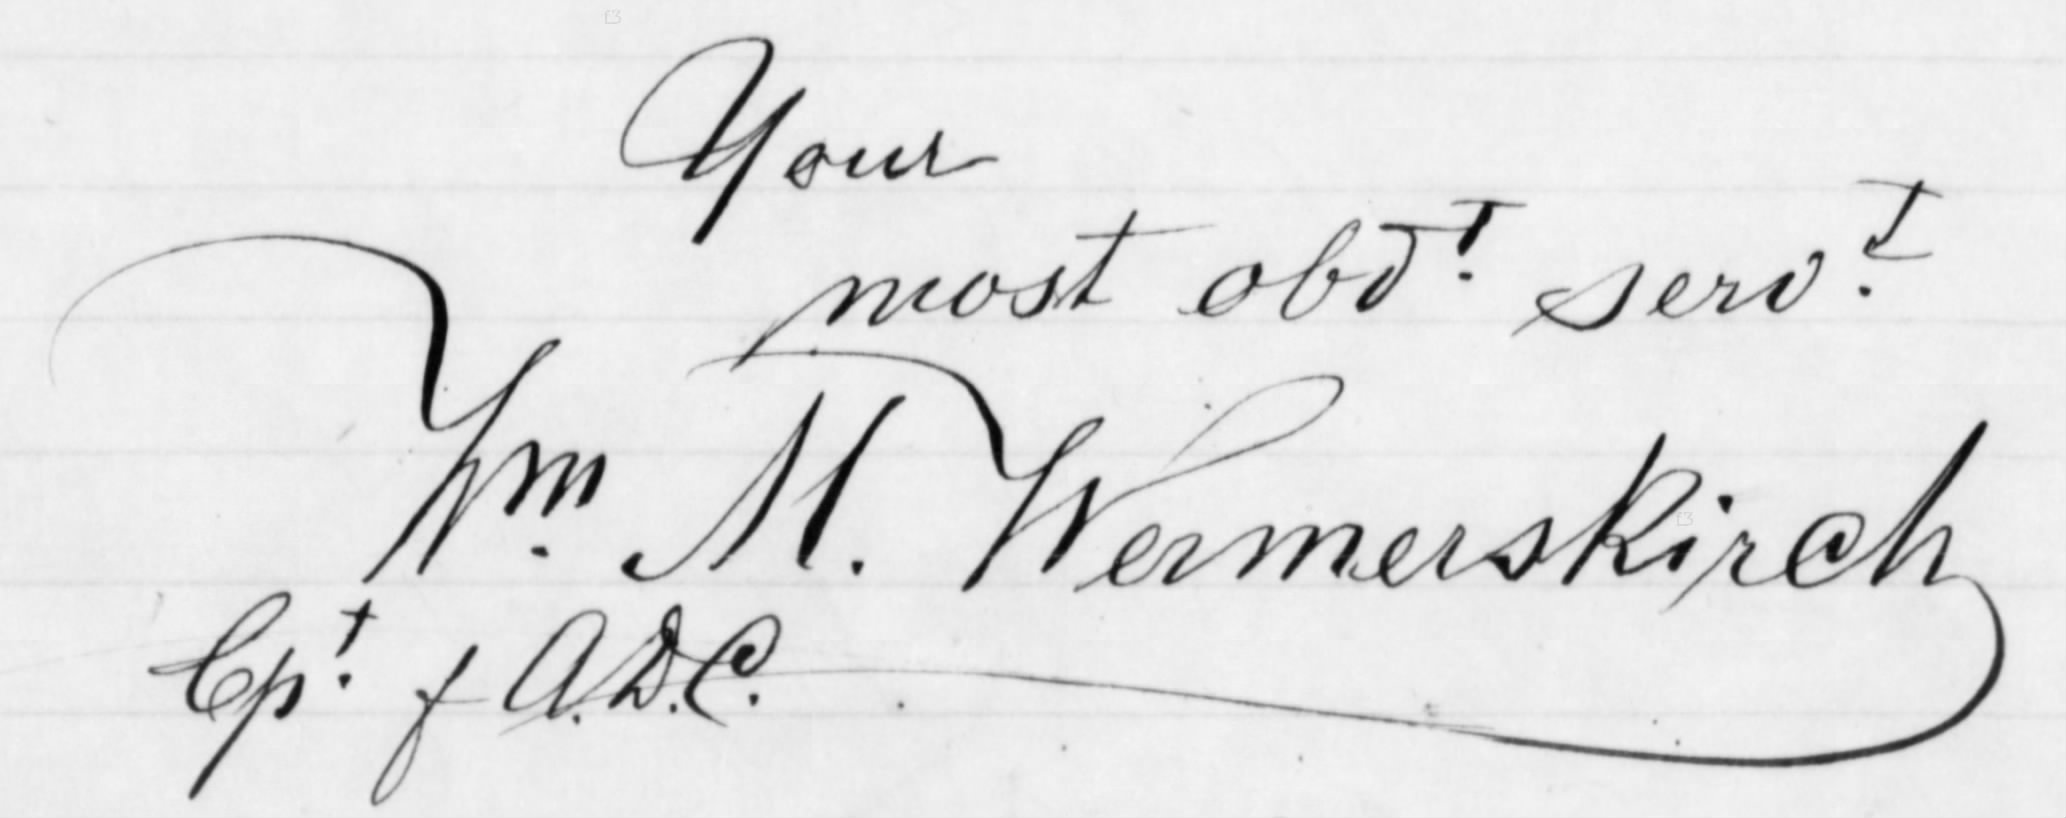 Your
most obdt. servt.
Wm. M. Wermerskirch
Cpt. & A.D.C.